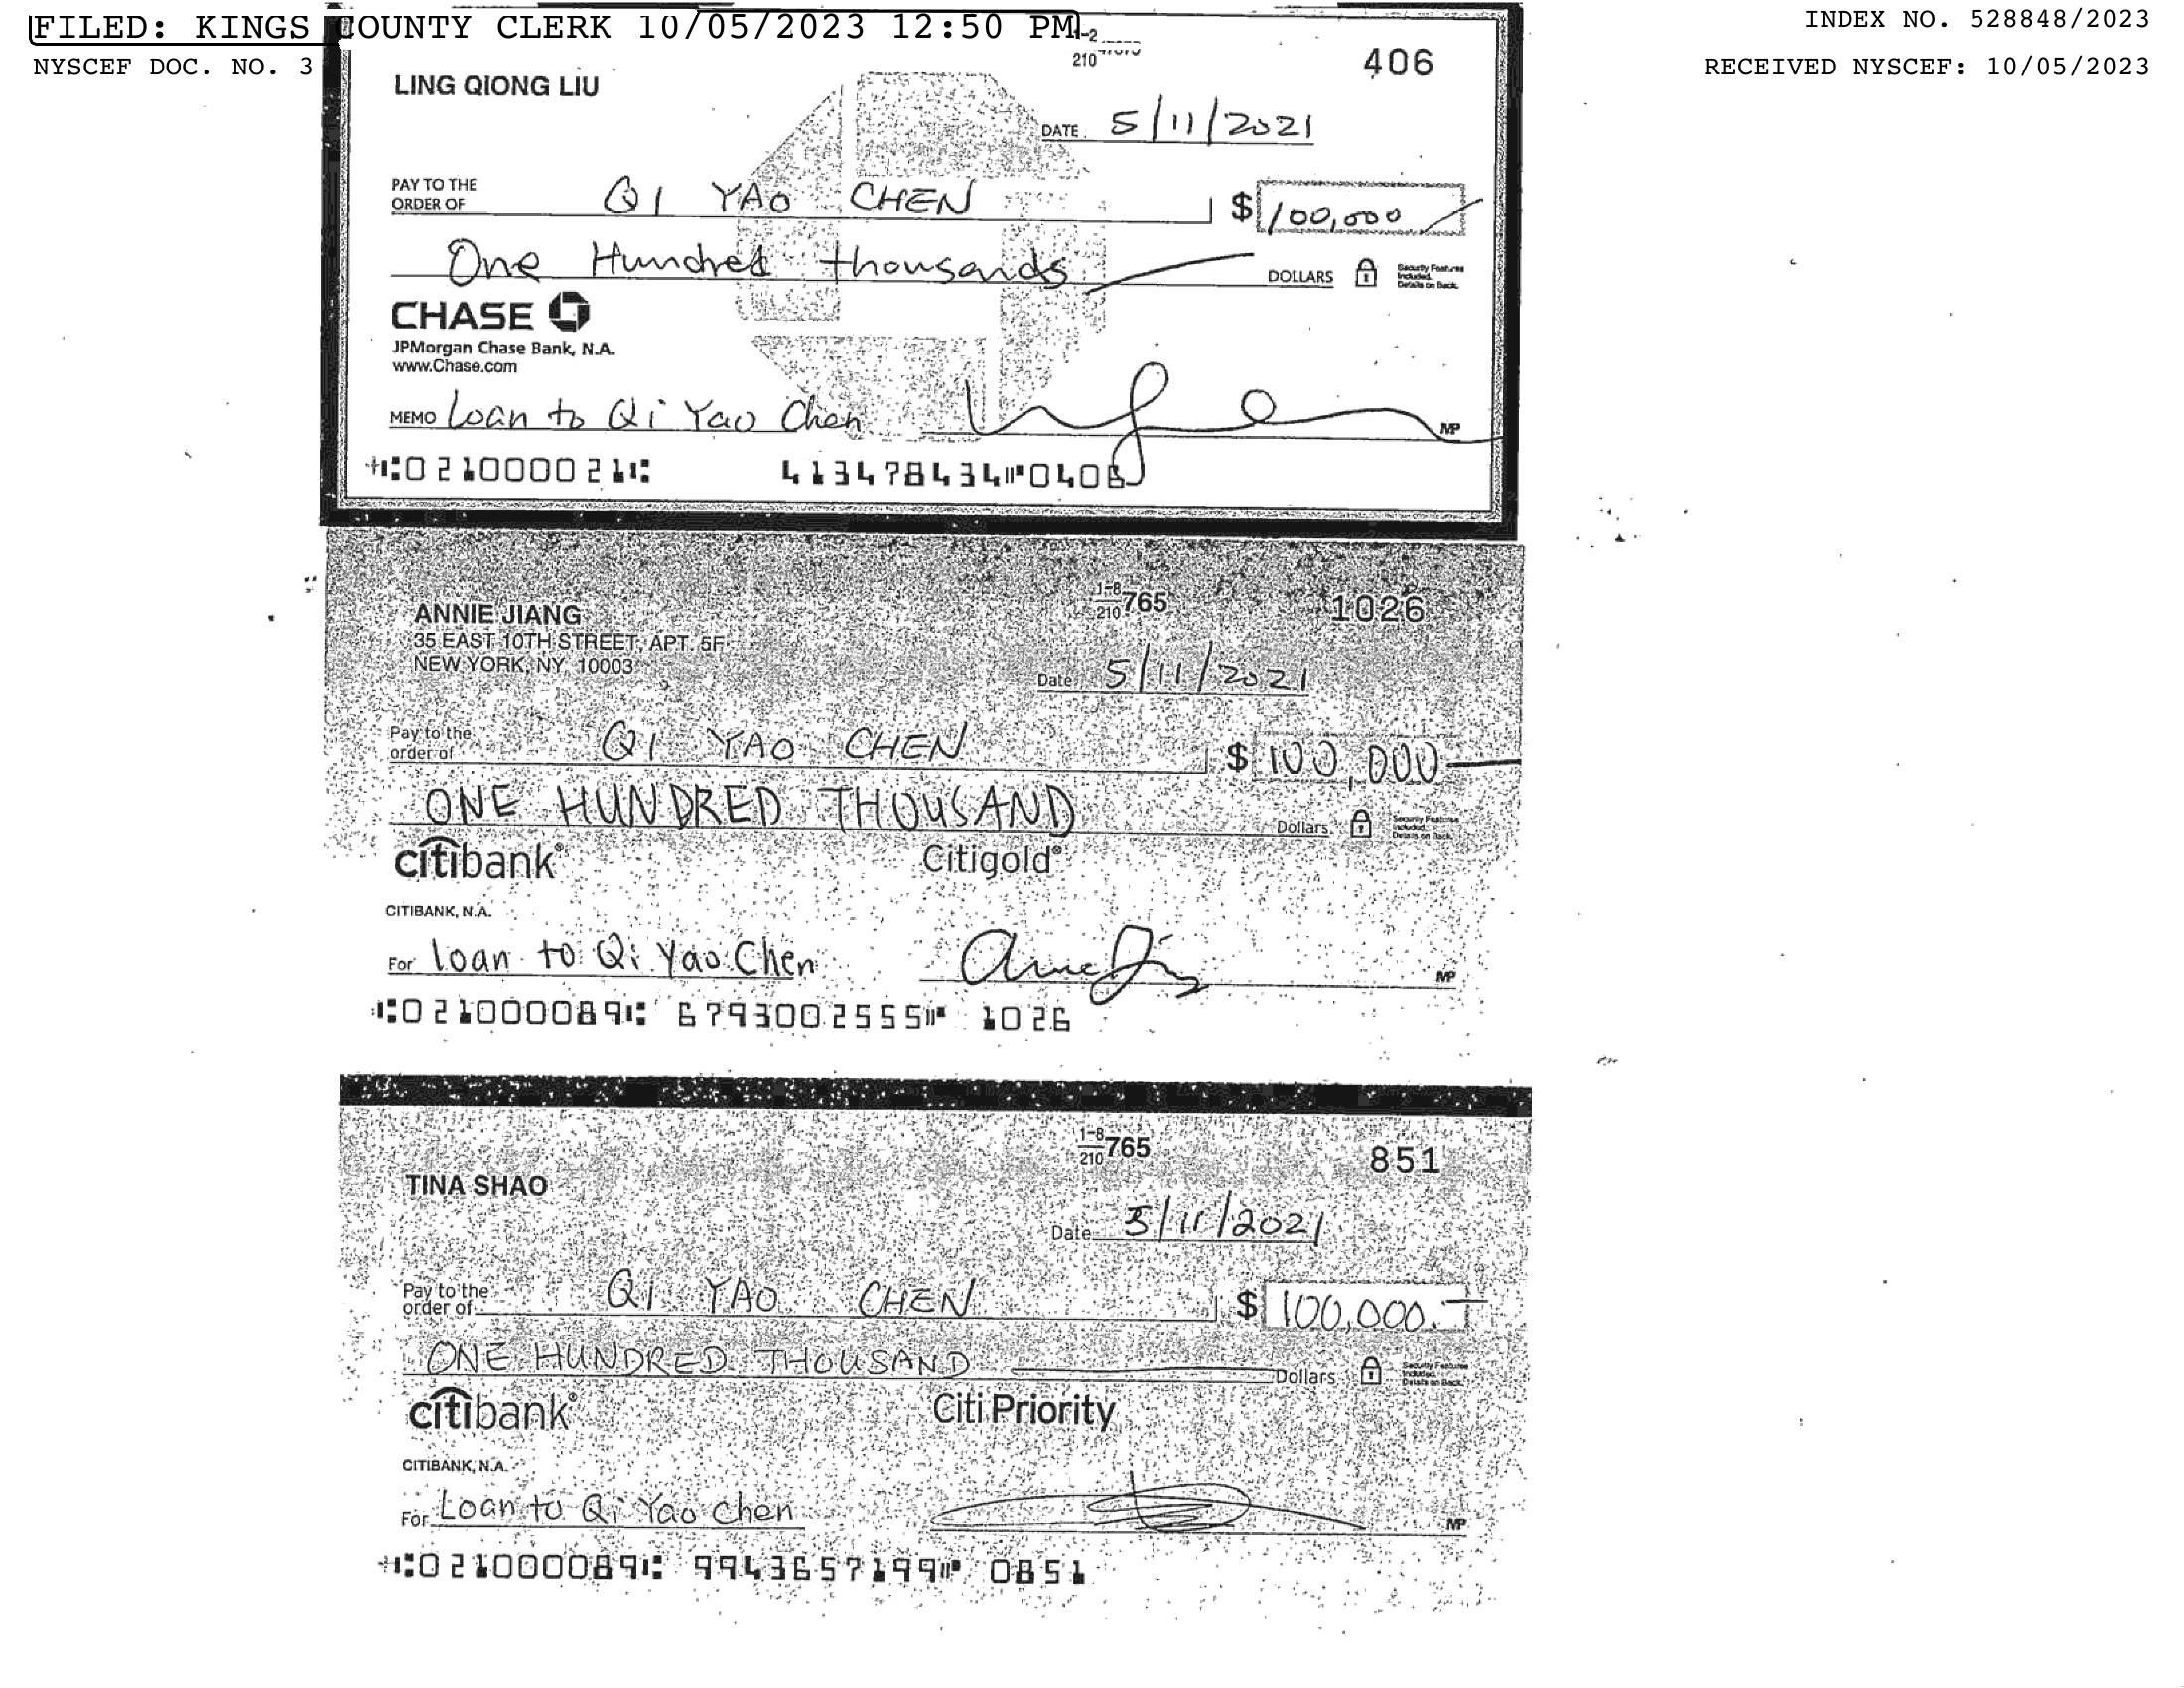 FILED: KINGS COUNTY CLERK 10/05/2023 12:50 PM
INDEX NO. 528848/2023
NYSCEF DOC. NO. 3
RECEIVED NYSCEF: 10/05/2023
210
406
LING QIONG LIU
DATE 5/11/2021
PAY TO THE
ORDER OF QI YAO CHEN $ 100,000
One Hundred thousands DOLLARS
Security Features
Included.
Details on Back.
CHASE
JPMorgan Chase Bank, N.A.
www.Chase.com
MEMO Loan to Qi Yao Chen
MP
021000021 413478434 0406
1-8
210 765
1026
ANNIE JIANG
35 EAST 10TH STREET, APT. 5F
NEW YORK, NY 10003
Date 5/11/2021
Pay to the
order of QI YAO CHEN $ 100,000
ONE HUNDRED THOUSAND Dollars
Security Features
Included.
Details on Back.
citibank® Citigold®
CITIBANK, N.A.
For loan to Qi Yao Chen Annie Jiang
MP
021000089 6793002555 1026
1-8
210 765
851
TINA SHAO
Date 5/11/2021
Pay to the
order of QI YAO CHEN $ 100,000.
ONE HUNDRED THOUSAND Dollars
Security Features
Included.
Details on Back.
citibank® Citi Priority
CITIBANK, N.A.
For Loan to Qi Yao Chen
MP
021000089 9943657199 0851